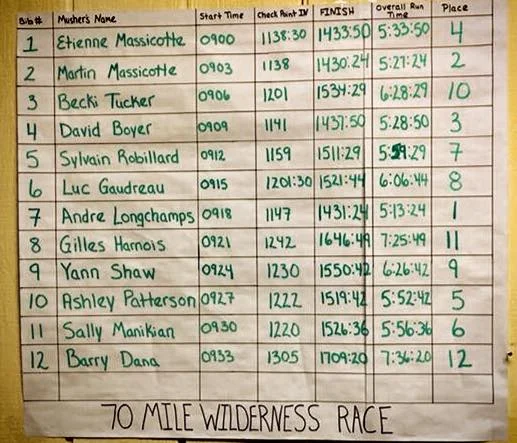 Bib# Musher's Name Start Time Check Point IN FINISH Overall Run Time Place
1 Etienne Massicotte 0900 1138:30 1433:50 5:33:50 4
2 Martin Massicotte 0903 1138 1430:24 5:27:24 2
3 Becki Tucker 0906 1201 1534:29 6:28:29 10
4 David Boyer 0909 1141 1437:50 5:28:50 3
5 Sylvain Robillard 0912 1159 1511:29 5:59:29 7
6 Luc Gaudreau 0915 1201:30 1521:44 6:06:44 8
7 Andre Longchamps 0918 1147 1431:24 5:13:24 1
8 Gilles Harnois 0921 1242 1646:49 7:25:49 11
9 Yann Shaw 0924 1230 1550:42 6:26:42 9
10 Ashley Patterson 0927 1222 1519:42 5:52:42 5
11 Sally Manikian 0930 1220 1526:36 5:56:36 6
12 Barry Dana 0933 1305 1709:20 7:36:20 12
70 MILE WILDERNESS RACE